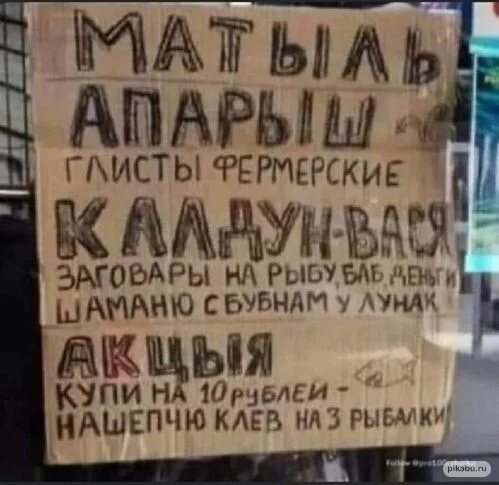 МАТЫЛЬ
АПАРЫШ
ГЛИСТЫ ФЕРМЕРСКИЕ
КАЛДУН-ВАСЯ
ЗАГОВАРЫ НА РЫБУ, БАБ, ДЕНЬГИ
ШАМАНЮ С БУБНАМ У ЛУНАК
АКЦЫЯ
КУПИ НА 10 рублЕй -
НАШЕПЧЮ КЛЕВ НА 3 РЫБАЛКИ
pikabu.ru